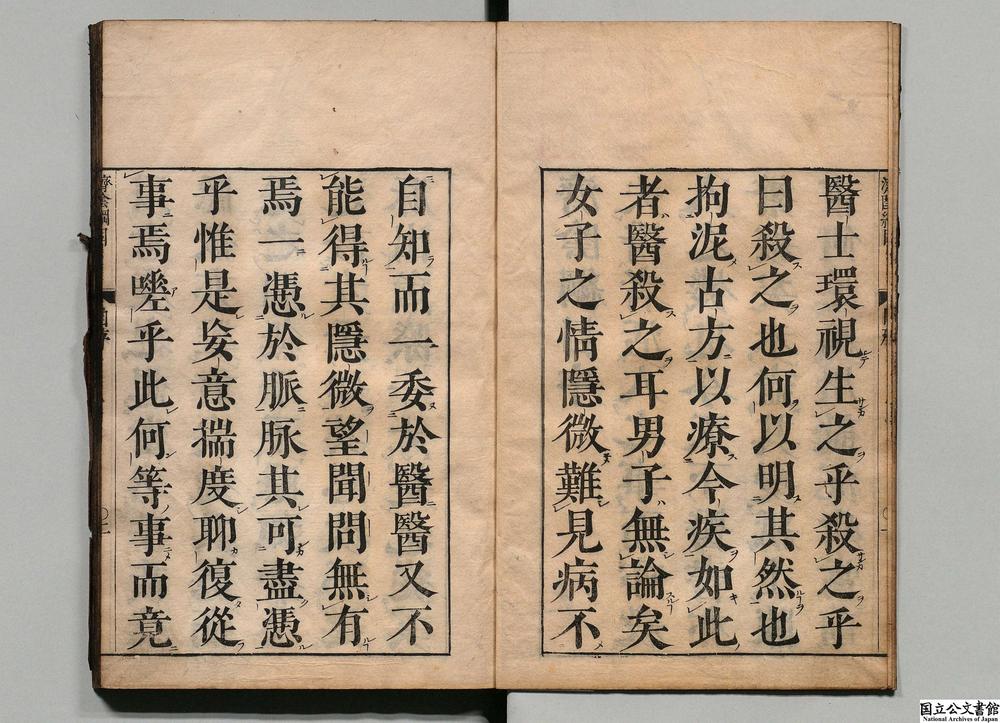 醫士環視生之乎殺之乎
曰殺之也何以明其然也
拘泥古方以療今疾如此
者醫殺之耳男子無論矣
女子之情隱微難見病不
自知而一委於醫醫又不
能得其隱微望聞問無有
焉一憑於脈脉其可盡憑
乎惟是妄意揣度聊復從
事焉嗟乎此何等事而竟
濟陰綱目
国立公文書館
National Archives of Japan